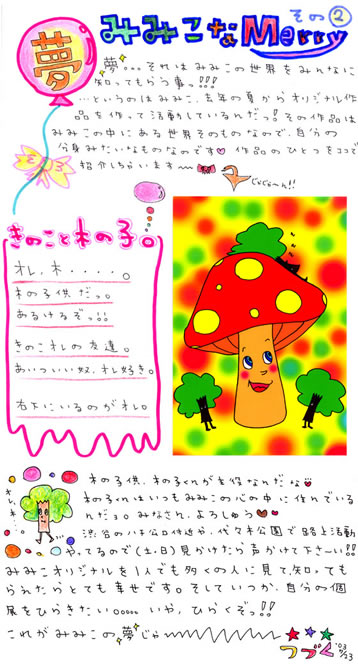 その②
みみこなMerry
夢
夢。。。それはみみこの世界をみんなに
知ってもらう事っ!!!
…というのはみみこ、去年の夏からオリジナル作
品を作って活動しているんだっ!その作品は
みみこの中にある世界そのものなので、自分の
分身みたいなものなのです♡作品のひとつをココで
紹介しちゃいます〜
じゃじゃーん!!
きのこと木の子。
オレ、木・・・・・。
木の子供だっ。
あるけるぞっ!!
きのこオレの友達。
あいついい奴、オレ好き。
右下にいるのがオレ。
木の子供、木の子くんが主役なんだな♡
木の子くんはいつもみみこの心の中に住んでいる
んだョ。みなさん、よろしゅう
オレ、木
渋谷のハチ公口付近や、代々木公園で路上活動
やってるので(土、日)見かけたら声かけて下さーい!!
みみこオリジナルを1人でも多くの人に見て、知っても
らえたらとても幸せです。そしていつか、自分の個
展をひらきたい。。。。。いや、ひらくぞっ!!
これがみみこの夢じゃ〜
つづく '03 1/23